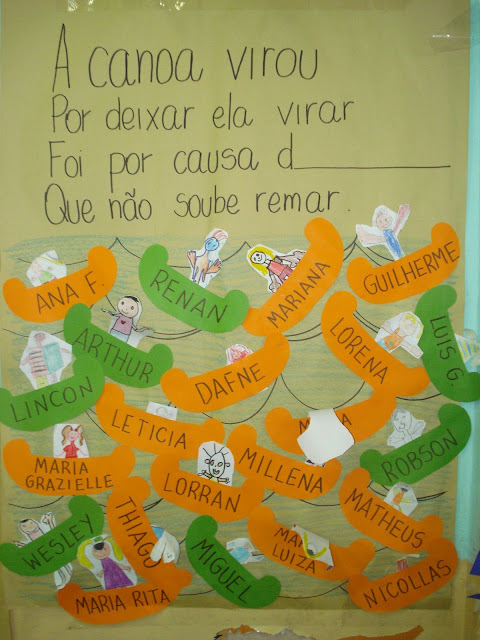 A canoa virou
Por deixar ela virar
Foi por causa d__________
Que não soube remar.
ANA F.
RENAN
MARIANA
GUILHERME
ARTHUR
LORENA
LUIS G.
LINCON
DAFNE
LETICIA
MARIA
GRAZIELLE
LORRAN
MILLENA
ROBSON
MATHEUS
WESLEY
THIAGO
MIGUEL
LUIZA
NICOLLAS
MARIA RITA